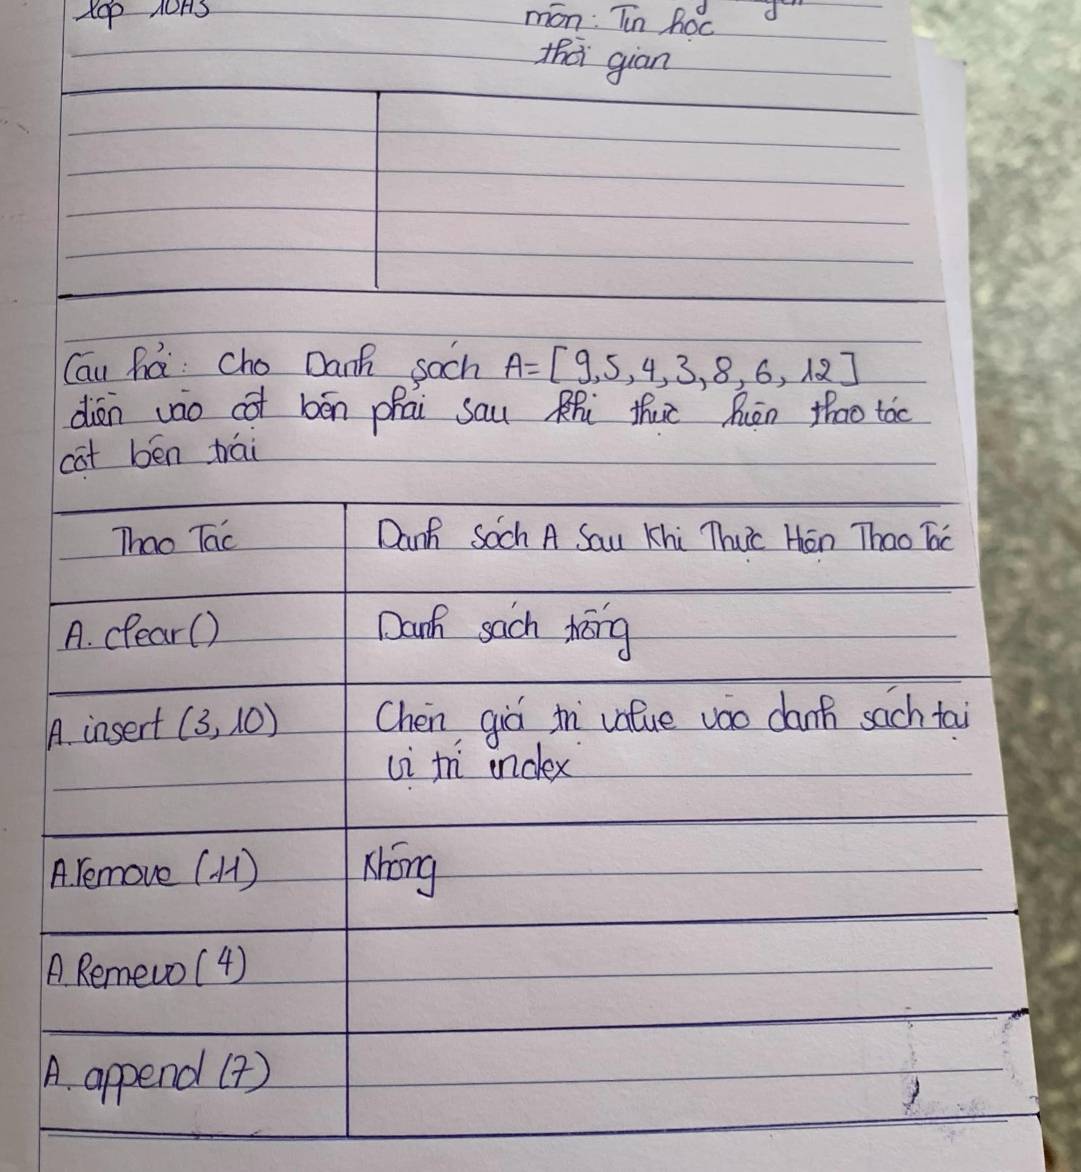 Lớp 10A3
môn: Tin học
thời gian
Câu hỏi: Cho Danh sách A=[9,5,4,3,8,6,12]
điền vào cột bên phải sau khi thực hiện thao tác
cột bên trái
Thao Tác
Danh Sách A Sau Khi Thực Hiện Thao Tác
A. clear()
Danh sách trống
A. insert (3, 10)
Chèn giá trị value vào danh sách tại
vị trí index
A.remove (11)
Không
A. Remevo (4)
A. append (7)